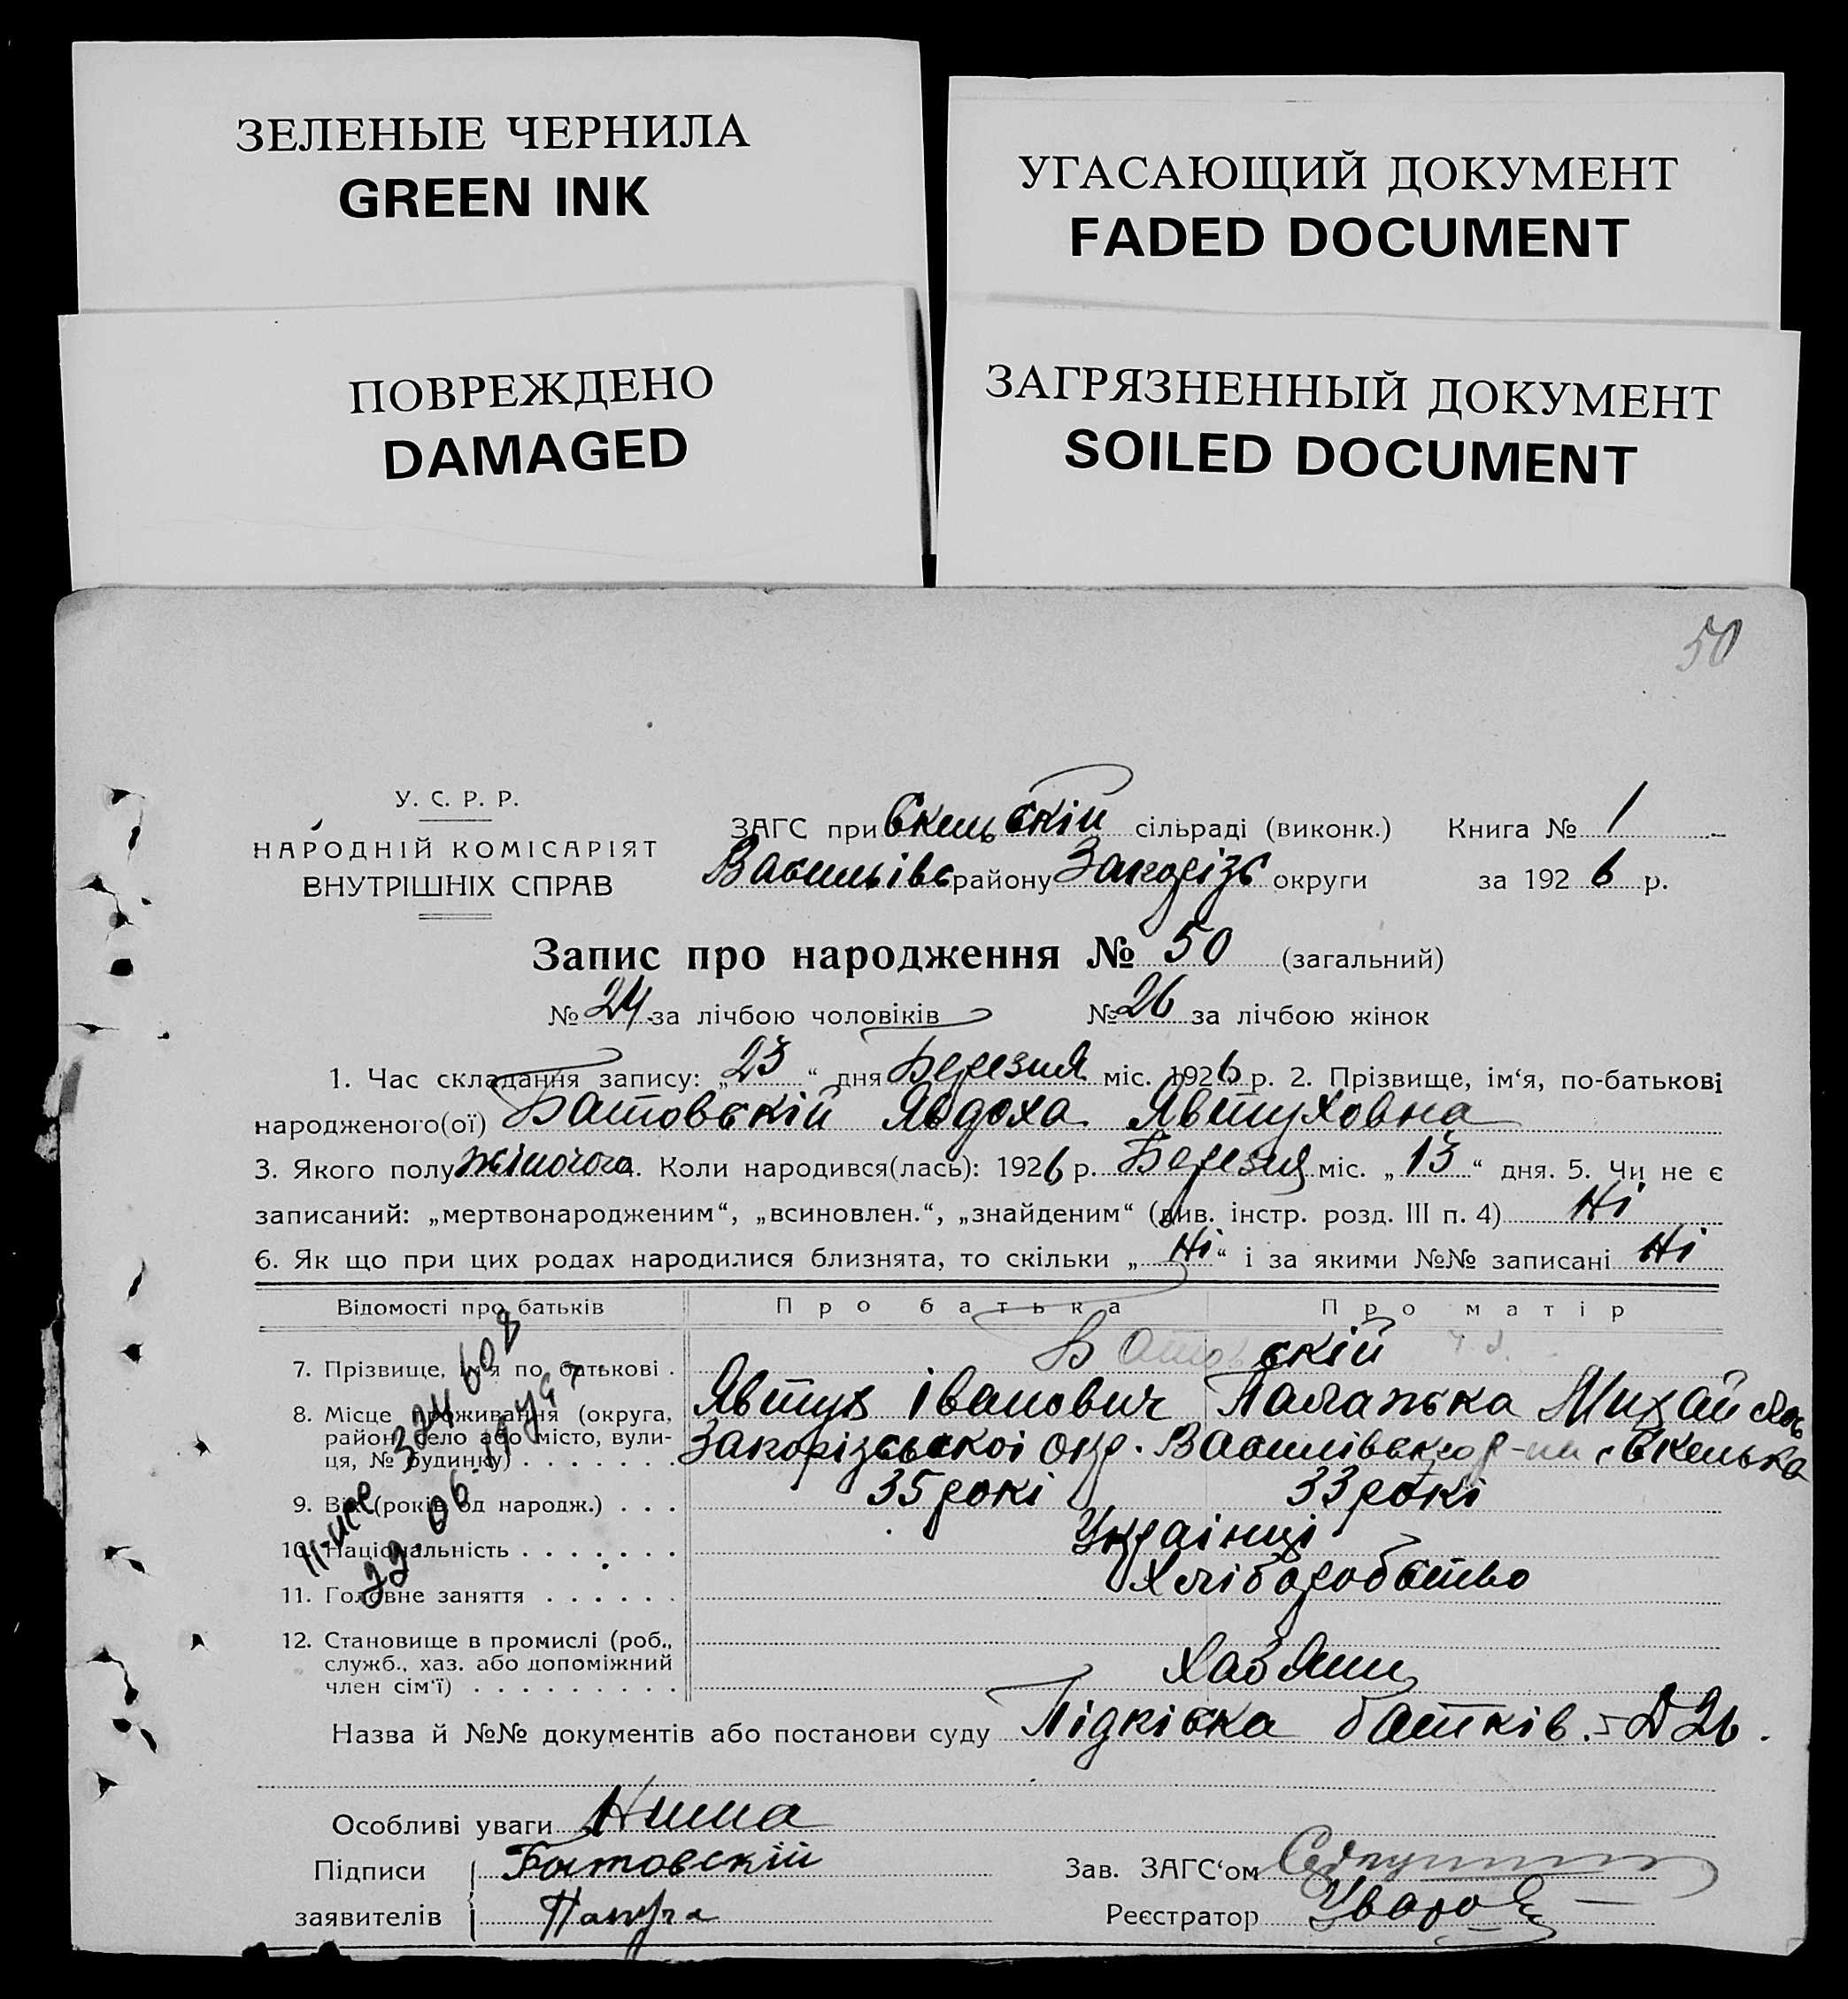 ЗЕЛЕНЫЕ ЧЕРНИЛА
GREEN INK
УГАСАЮЩИЙ ДОКУМЕНТ
FADED DOCUMENT
ПОВРЕЖДЕНО
DAMAGED
ЗАГРЯЗНЕННЫЙ ДОКУМЕНТ
SOILED DOCUMENT
50
У. С. Р. Р.
НАРОДНІЙ КОМІСАРІЯТ
ВНУТРІШНІХ СПРАВ
ЗАГС при Скельській сільраді (виконк.) Книга № 1
Васильівс району Запоріз округи за 1926 р.
Запис про народження № 50 (загальний)
№ 24 за лічбою чоловіків № 26 за лічбою жінок
1. Час складання запису: „23“ дня Березня міс. 1926 р. 2. Прізвище, ім‘я, по-батькові
народженого(ої) Батовській Явдоха Явтуховна
3. Якого полу жіночого 4. Коли народився(лась): 1926 р. Березня міс. „13“ дня. 5. Чи не є
записаний: „мертвонародженим“, „всиновлен.“, „знайденим“ (див. інстр. розд. III п. 4) Ні
6. Як що при цих родах народилися близнята, то скільки „Ні“ і за якими №№ записані Ні
Відомості про батьків Про батька Про матір
7. Прізвище, ім‘я по батькові . Батовскій
Явтух Іванович Палажка Михайл
8. Місце проживання (округа,
район, село або місто, вули-
ця, № будинку) Запорізської окр. Василівськ р-на с Скелька
9. Вік (років од народж.) . . . 35 рокі 33 рокі
10. Національність . . . . . . . Українці
11. Головне заняття . . . . . . Хліборобство
12. Становище в промислі (роб.,
служб., хаз. або допоміжний
член сім‘ї) . . . . . . . . . Хазяин
324608
22.06.
Назва й №№ документів або постанови суду батків. 26.
Особливі уваги Нима
Підписи Батовскій
заявителів
Зав. ЗАГС‘ом
Реєстратор Уваров